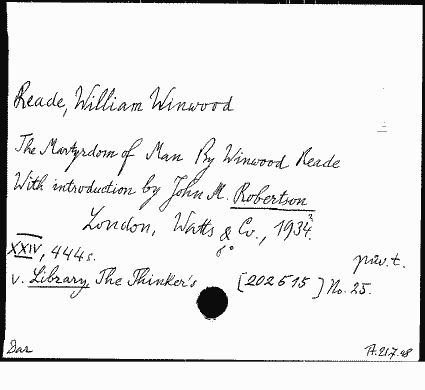 Reade, William Winwood
The Martyrdom of Man By Winwood Reade
With introduction by John M. Robertson
London, Watts & Co., 1934³.
8°
XXIV, 444 s.
priv. t.
v. Library, The Thinker's [202515] No. 25.
Dar A. 21.7.48